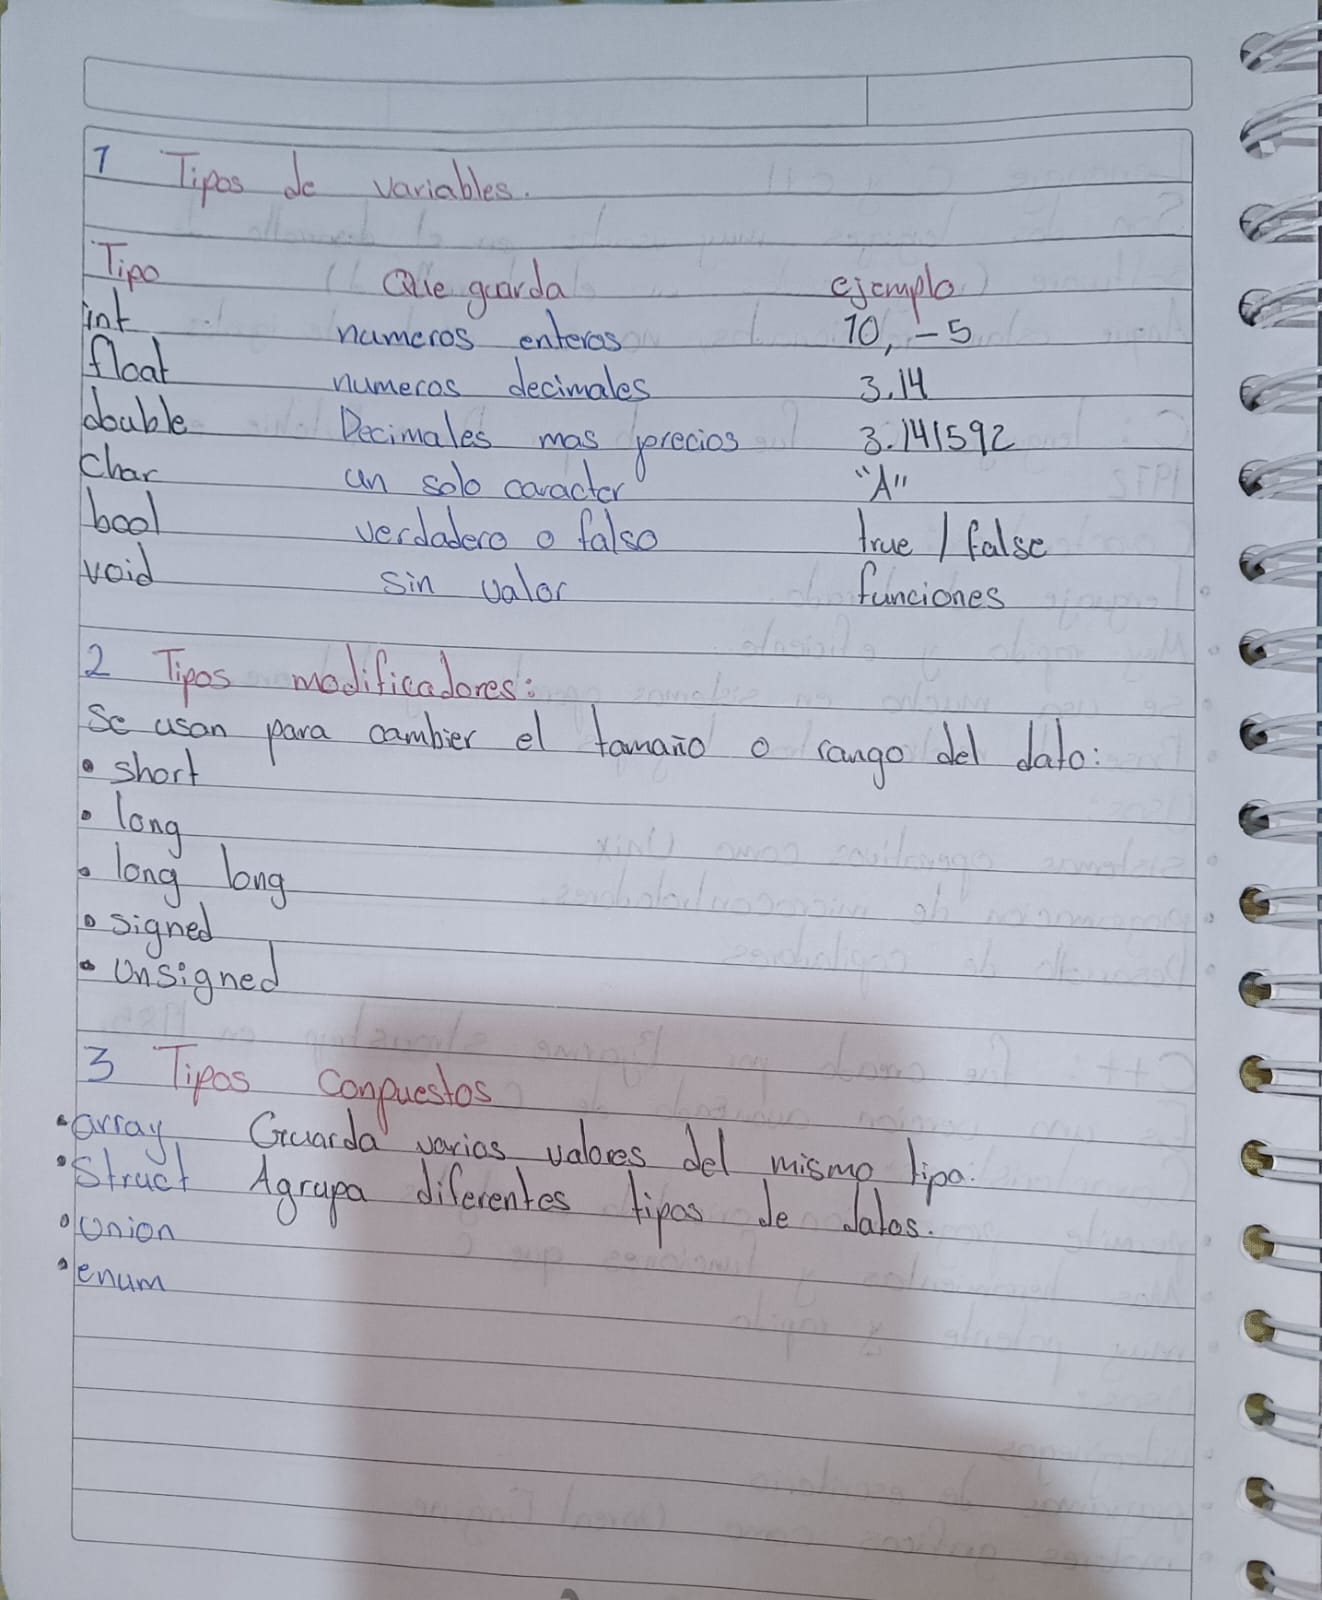 1 Tipos de variables.
Tipo Que guarda ejemplo
int numeros enteros 10, -5
float numeros decimales 3.14
double Decimales mas precios 3.141592
char un solo caracter "A"
bool verdadero o falso true / false
void sin valor funciones
2 Tipos modificadores:
Se usan para cambier el tamaño o rango del dato:
• short
• long
• long long
• signed
• unsigned
3 Tipos conpuestos
• array Guarda varios valores del mismo tipo.
• Struct Agrupa diferentes tipos de datos.
• union
• enum